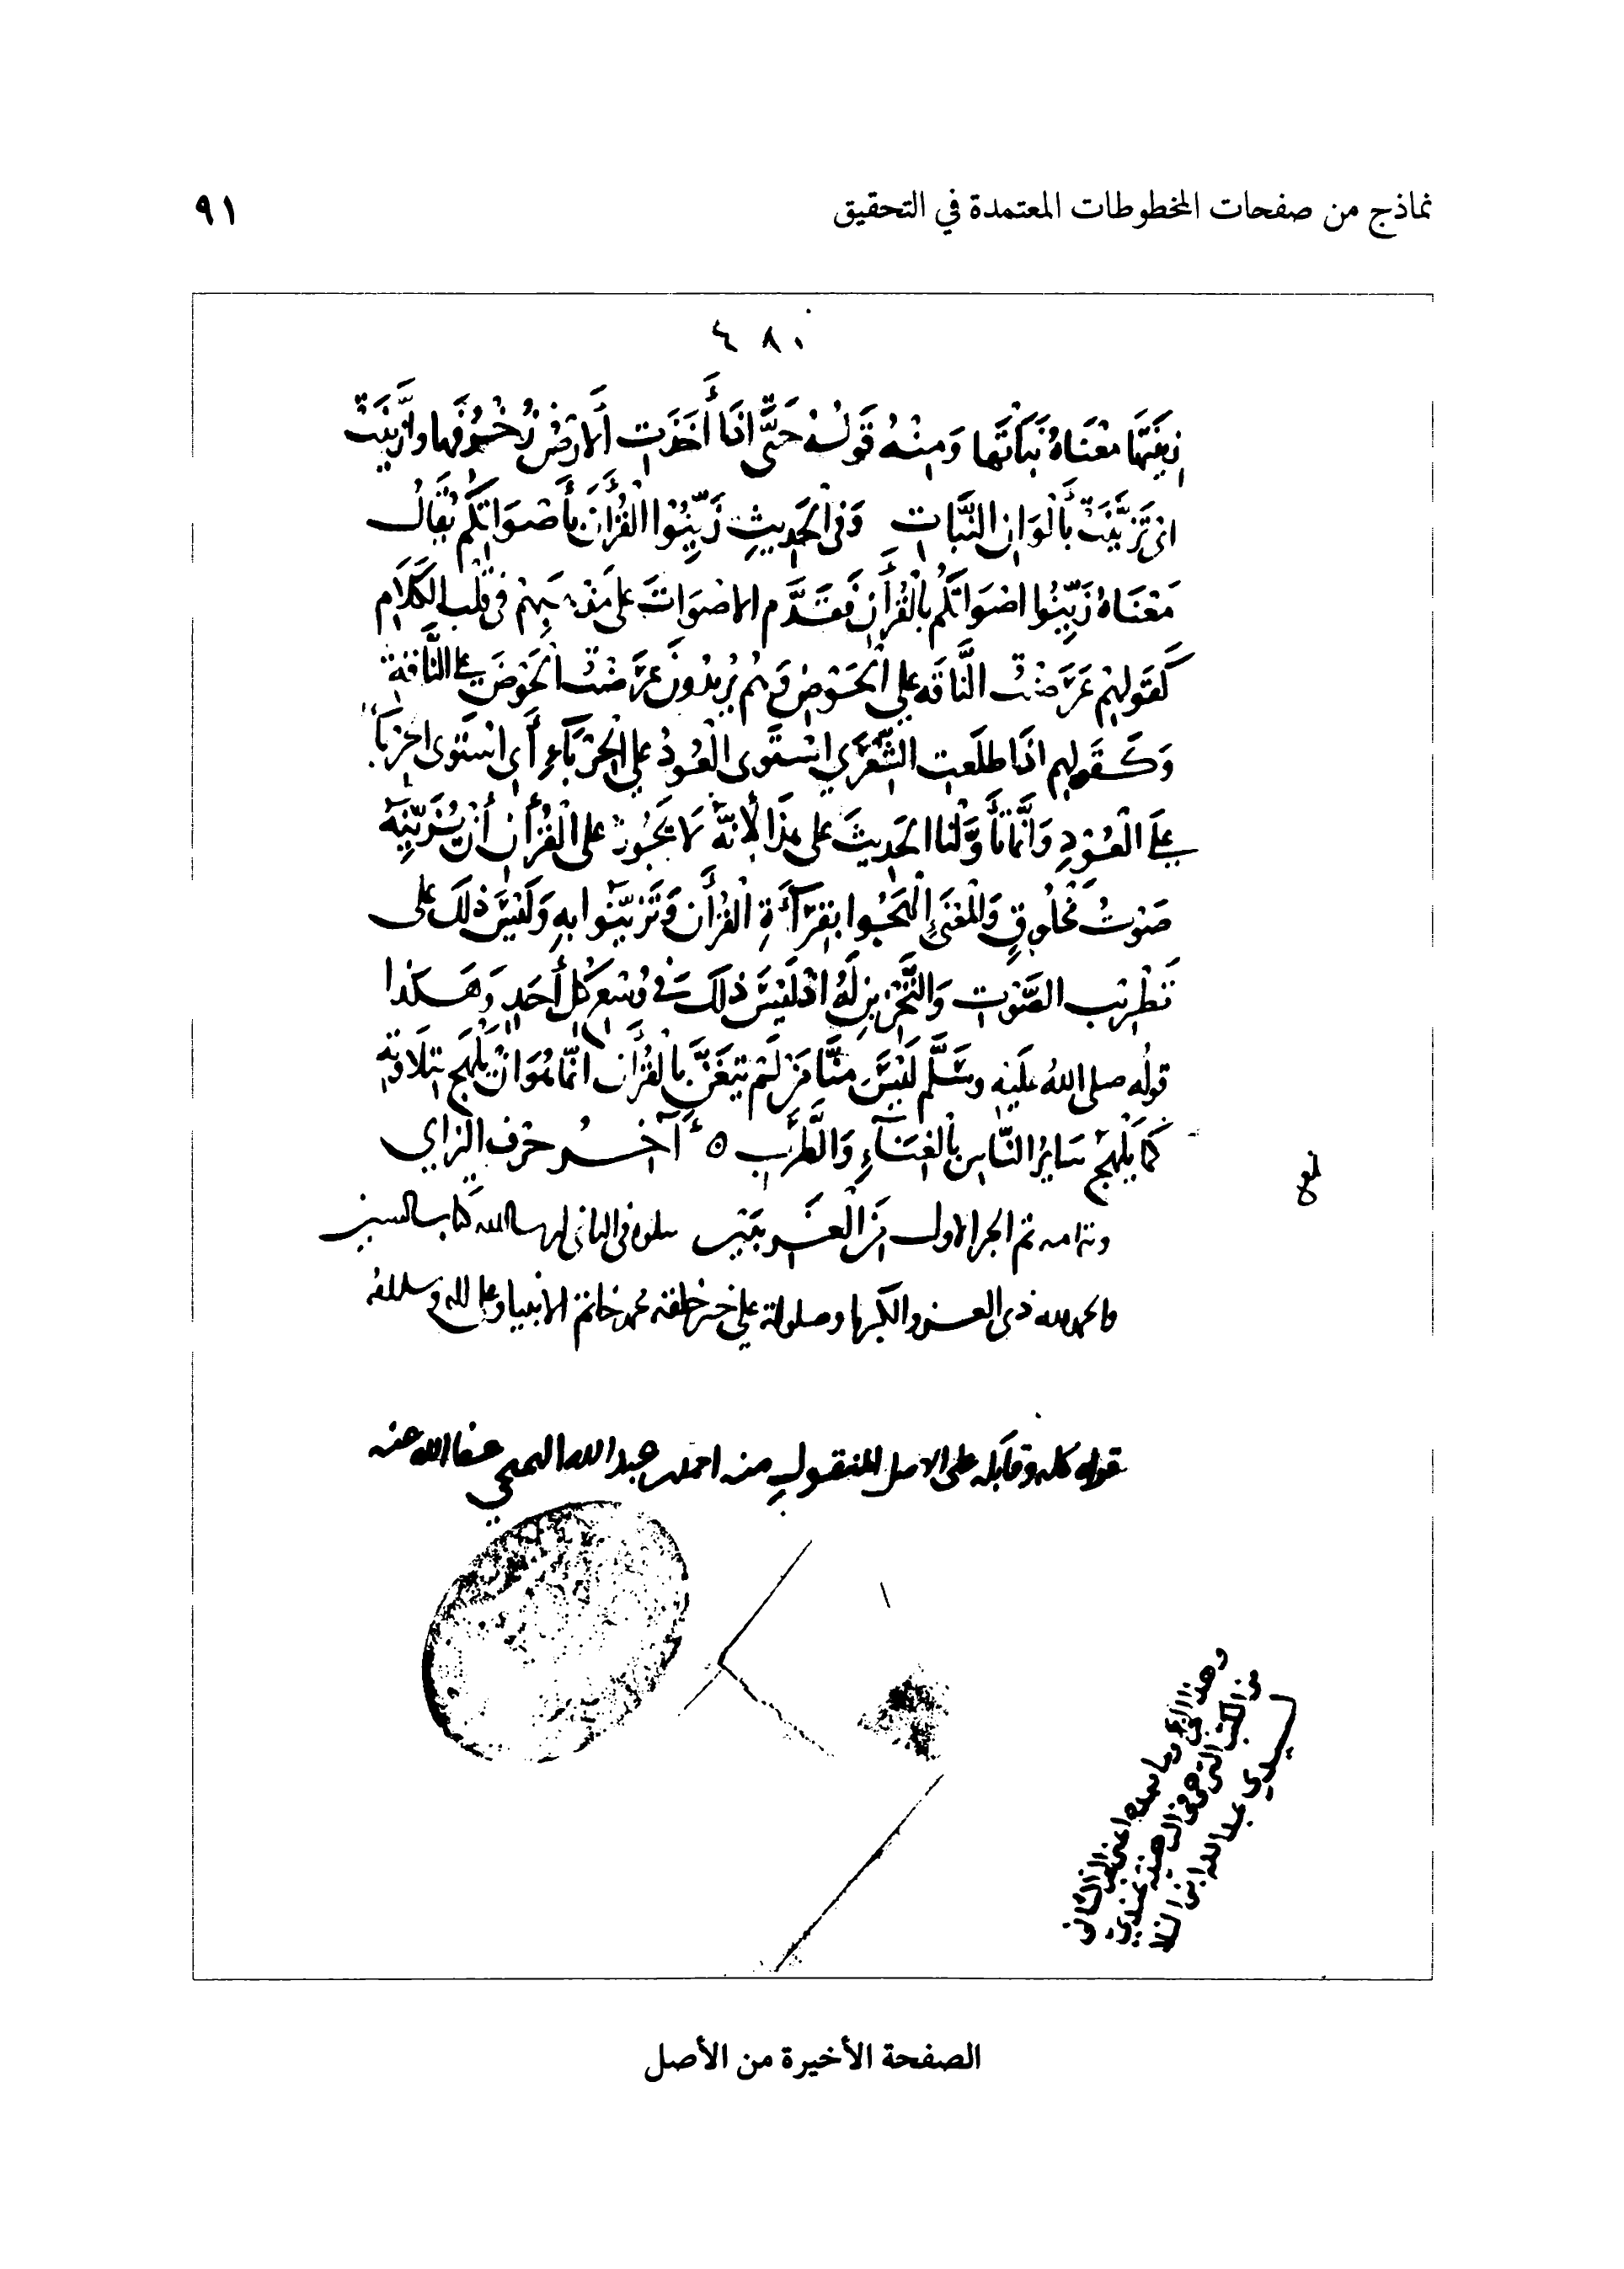 نماذج من صفحات المخطوطات المعتمدة في التحقيق
٩١
زينتها معْنَاهُ نَبَاتَهَا وَمِنْهُ قَوْلُهُ حَتَّى اذَا أَخَذَتِ الأَرْضُ زُخْرُفَهَا وازَّيَّنَتْ
اى تَزَيَّنَتْ بأَلْوَانِ النَّبَاتِ وَفى الحَدِيثِ زَيِّنُوا القُرْأَنَ بأَصْوَاتِكُم يُقَالُ
مَعْنَاهُ زَيِّنُوا اصْوَاتَكُم بالْقُرْأَنِ فَقَدَّم الاصْوَاتَ على مَذْهَبِهِمْ فى قَلْب الكَلَامِ
كَقَوْلِهِمْ عَرَضْتُ النَّاقَه على الحَوْضِ وَهُم يُرِيدُونَ عَرَضْتُ الحَوْضَ على النَّاقةِ
وَكَقَولهِم اذَا طلَعَتِ الشِّعْرَي اسْتَوَى الْعُودُ على الحِرْبَاءِ أَى اسْتَوَى الحِرْبَا
على الْعُودِ وَانَّمَا تَأَوَّلْنَا الحَدِيثَ على هذَا لأَنَّهُ لَا يَجُوزُ على القُرْأَنِ أَنْ يُزَيِّنَهُ
صَوْتُ مَخْلُوقٍ وَالْمَعْنَى الْهَجُوا بقِرَآءَةِ القُرْأَن وَتَزَيَّنُوا بهِ وَلَيْسَ ذلكَ على
تَطْرِيْب الصَّوْتِ وَالتَّحْزِينِ لَهُ اذْ لَيْسَ ذلكَ فى وُسْعِ كُلِّ أَحَدٍ وَهَكذا
قولُه صلى اللهُ عليْهِ وسَلَّم لَيْسَ مِنَّا مَنْ لَمْ يَتَغَنَّ بالْقُرْأَن انَّمَا هُوَ انْ يَلْهَجَ بِتِلَاوَتِهِ
كَمَا يَلْهَجُ سَايِرُ النَّاسِ بالْغِنَآءِ وَالطَّرَبِ ه آخِـرُ حَرْف الزاي
وبتمامه تم الجزالاول مِنَ الْغَرِيبَيْنِ يتلوه فى الثانى ان شا الله كتاب السين
والحمدلله ذى العز والكبريا وصلواته على خير خلقه محمد خاتم الانبيا وعلى اله وسلم
قراه كله وقابله على الاصل المنقول منه احمد بن عبد الله عفا الله عنه
وهذا الجزء وما بعده اعنى الجزء الثانى
من الكتب التى هى عندى
لسيدي عبد الله ابن
الصفحة الأخيرة من الأصل